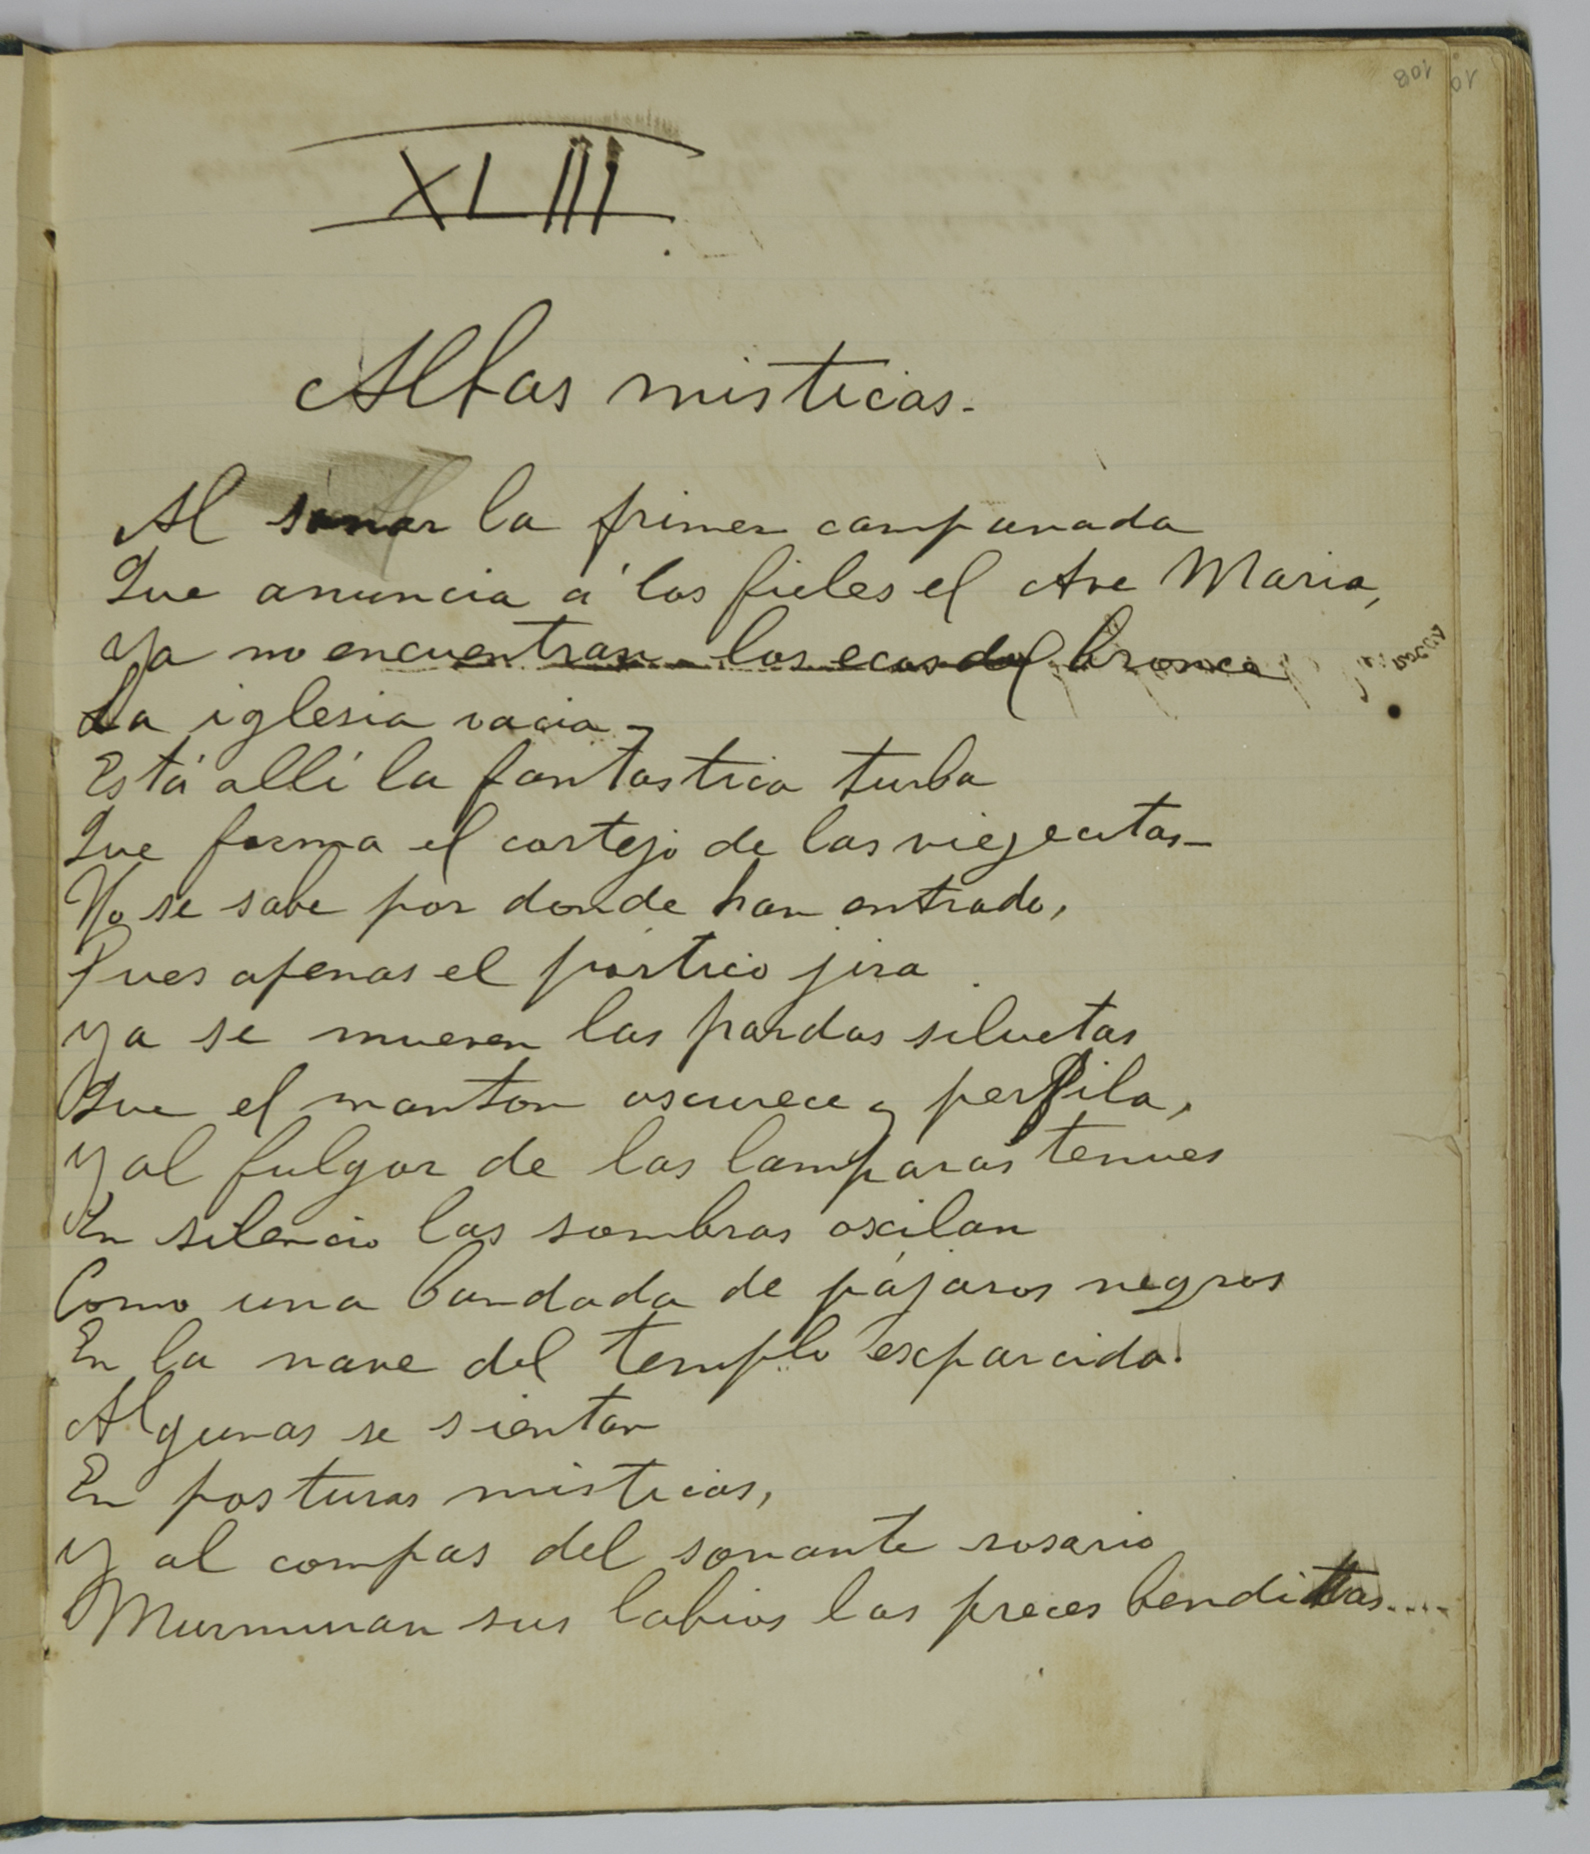 108
XLIII
Albas misticas.
Al sonar la primer campanada
Que anuncia á los fieles el Ave Maria,
Ya no encuentran los ecos del bronce
La iglesia vacia –
Está allí la fantastica turba
Que forma el cortejo de las viejecitas –
No se sabe por donde han entrado,
Pues apenas el pórtico jira
Ya se mueven las pardas siluetas
Que el manton oscurece y perfila,
Y al fulgor de las lamparas tenues
En silencio las sombras oscilan
Como una bandada de pájaros negros
En la nave del templo esparcida.
Algunas se sientan
En posturas misticas,
Y al compas del sonante rosario
Murmuran sus labios las preces benditas....